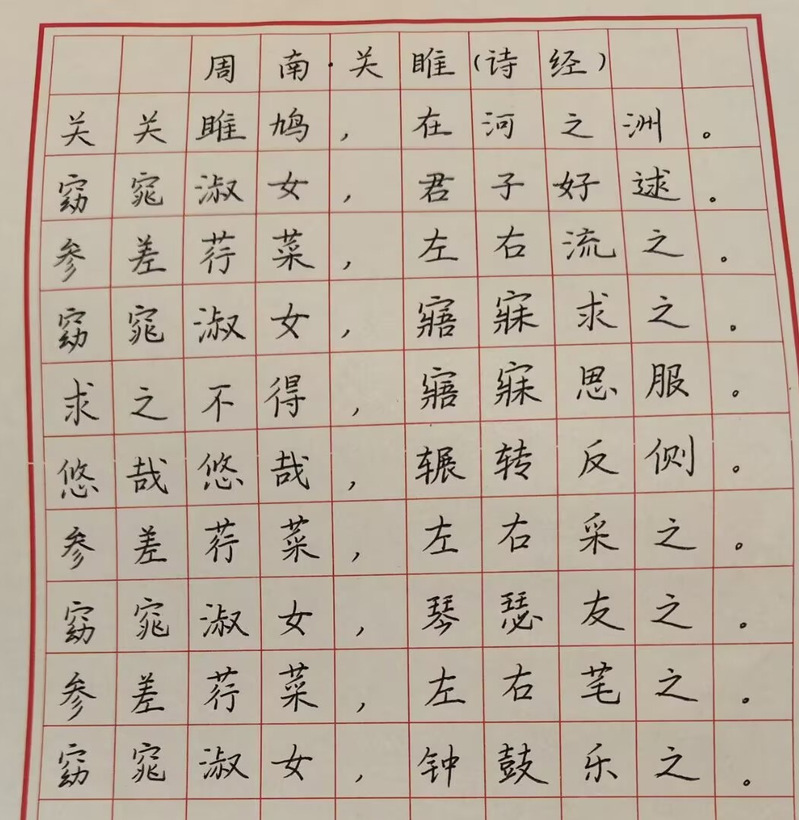 周南·关雎(诗经)
关关雎鸠,在河之洲。
窈窕淑女,君子好逑。
参差荇菜,左右流之。
窈窕淑女,寤寐求之。
求之不得,寤寐思服。
悠哉悠哉,辗转反侧。
参差荇菜,左右采之。
窈窕淑女,琴瑟友之。
参差荇菜,左右芼之。
窈窕淑女,钟鼓乐之。